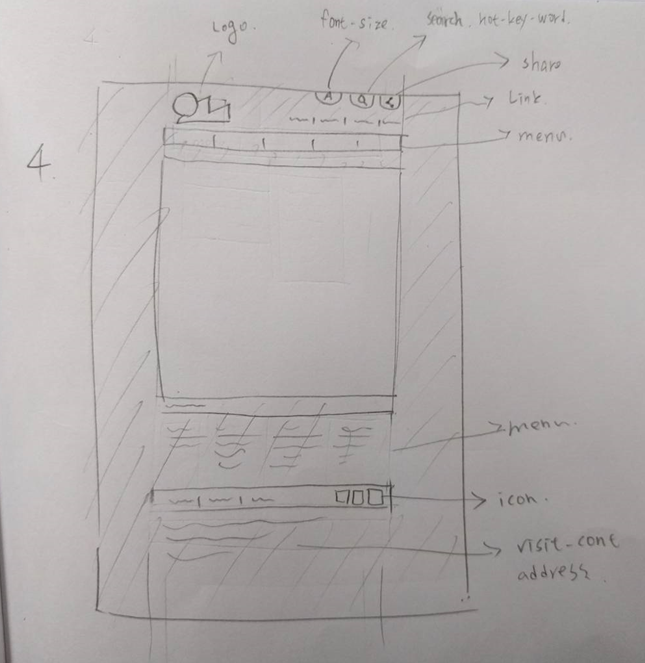 Logo.
font-size.
search. hot-key-word.
share
Link.
menu.
4
A
Q
menu.
icon.
visit-cont
address.